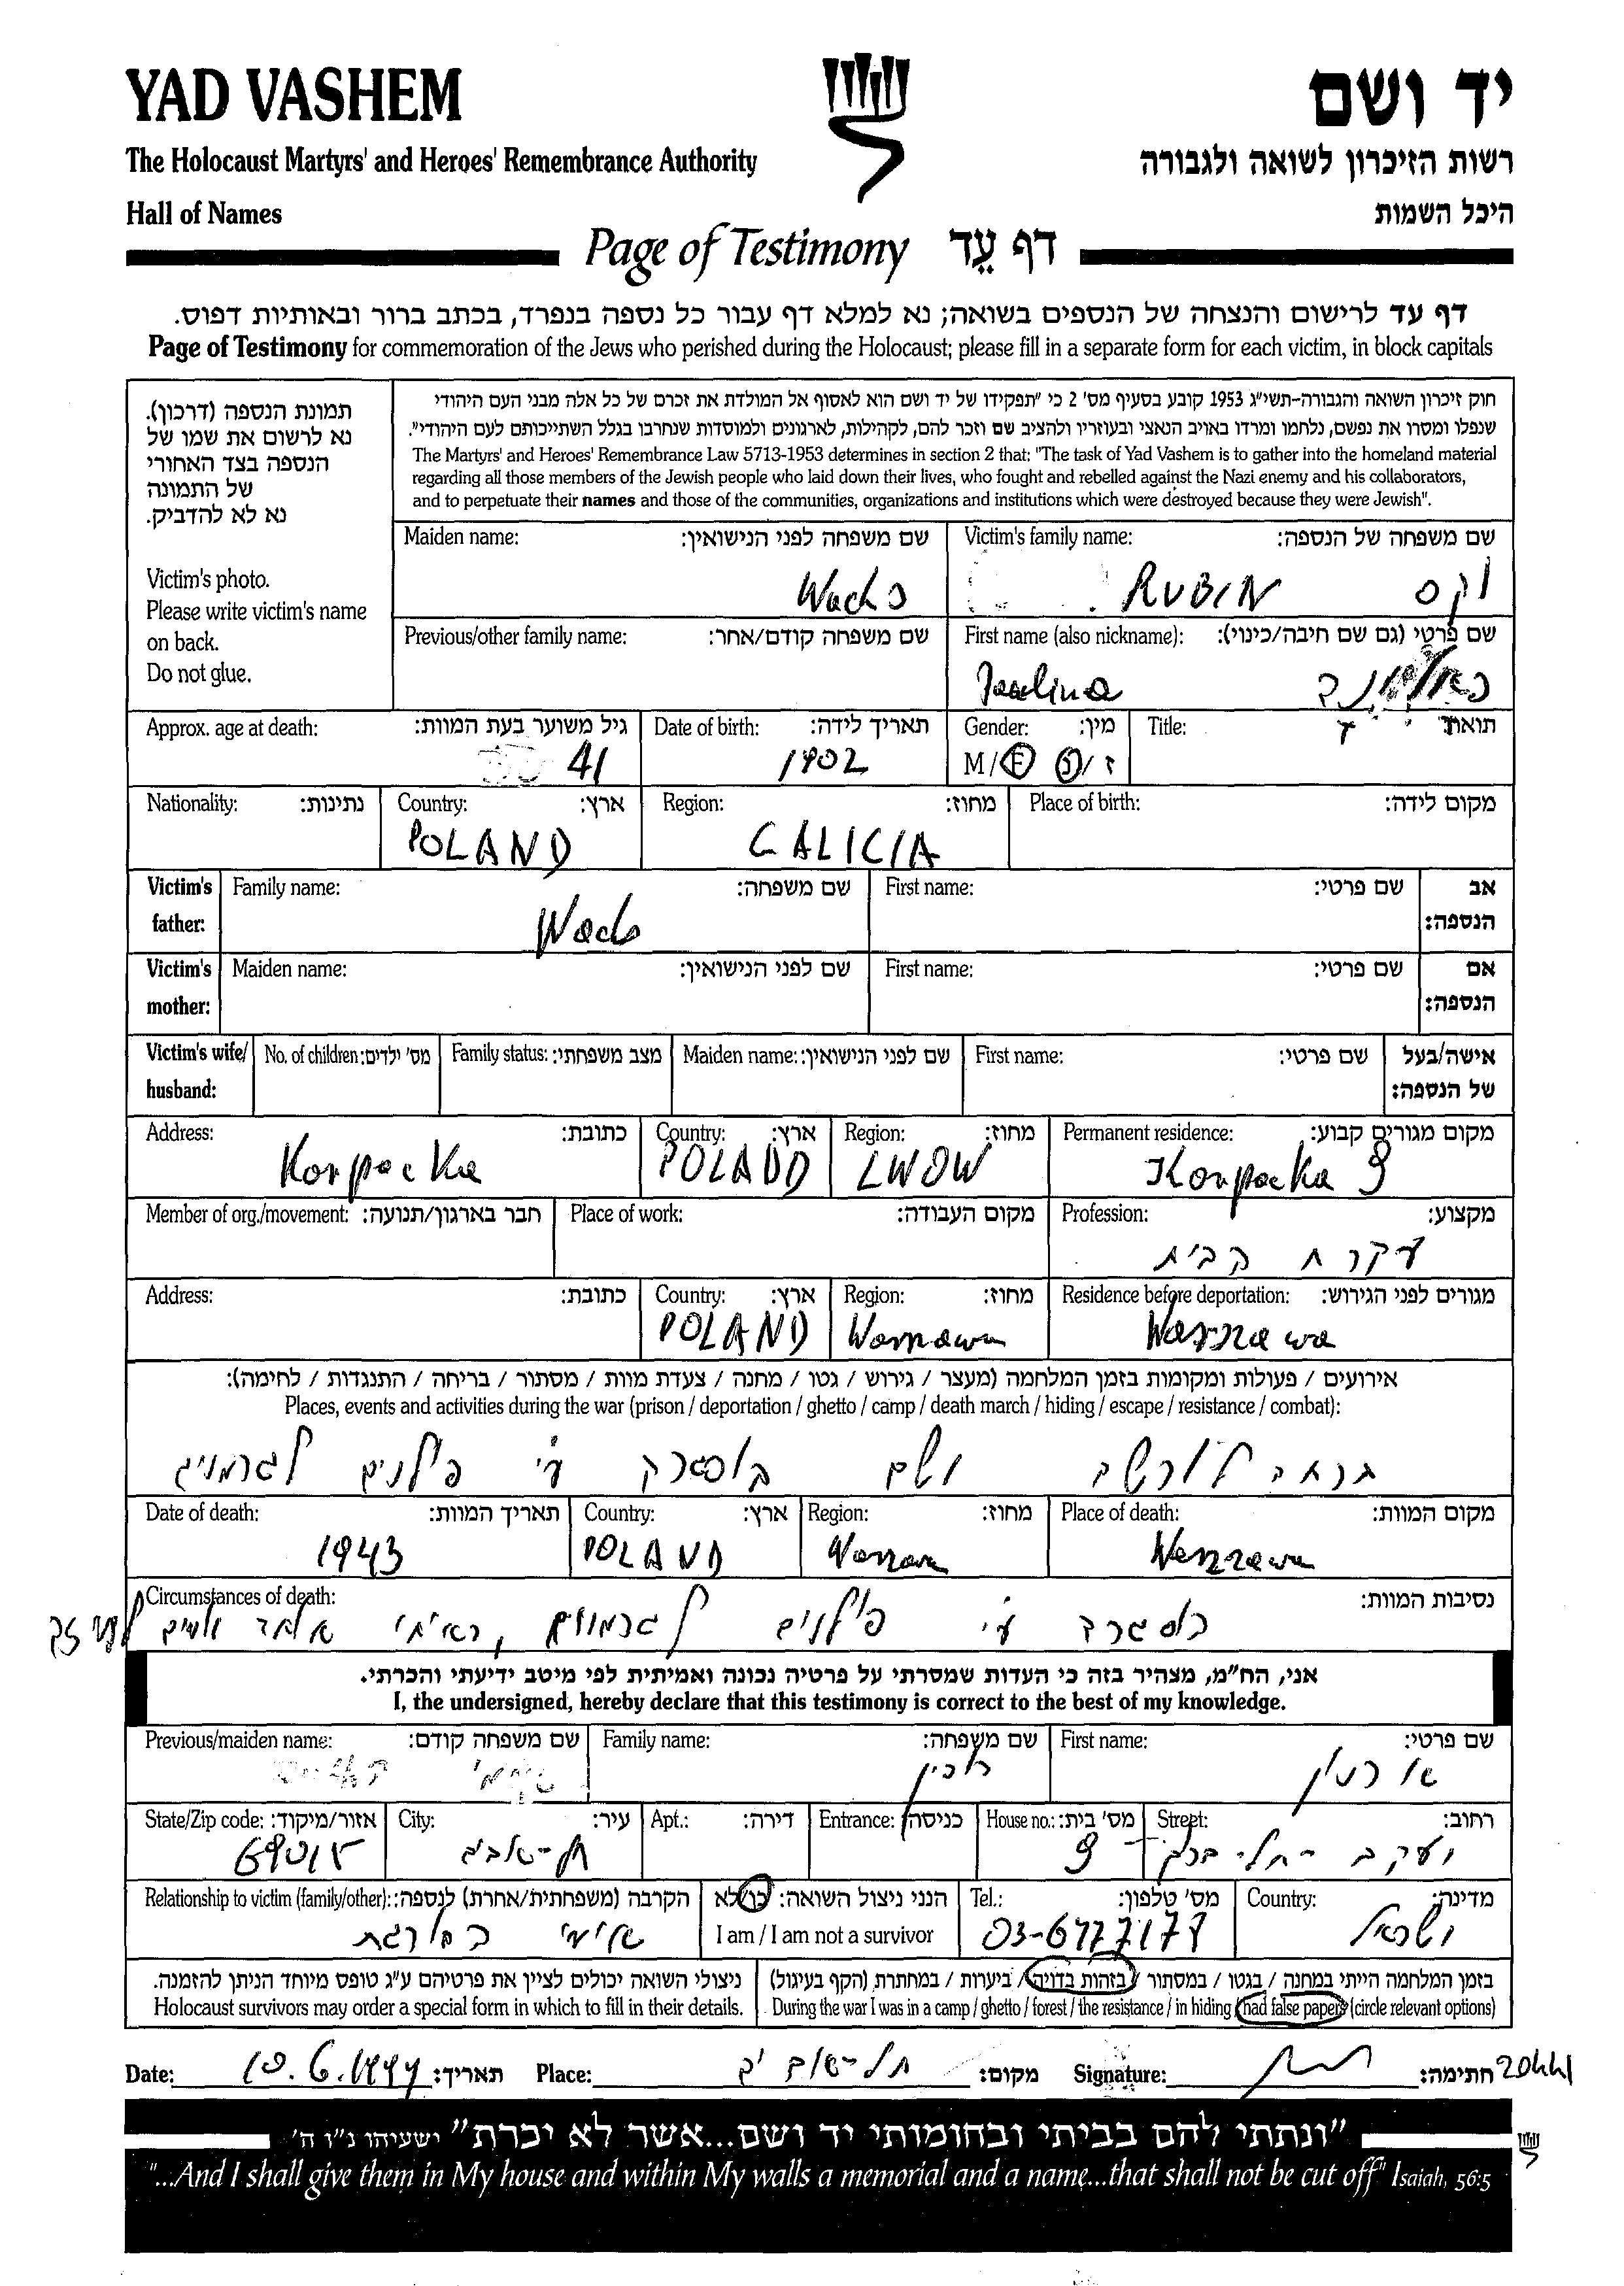 YAD VASHEM
יד ושם
The Holocaust Martyrs' and Heroes' Remembrance Authority
רשות הזיכרון לשואה ולגבורה
Hall of Names
היכל השמות
Page of Testimony דף עֵד
דף עד לרישום והנצחה של הנספים בשואה; נא למלא דף עבור כל נספה בנפרד, בכתב ברור ובאותיות דפוס.
Page of Testimony for commemoration of the Jews who perished during the Holocaust; please fill in a separate form for each victim, in block capitals
תמונת הנספה (דרכון).
נא לרשום את שמו של
הנספה בצד האחורי
של התמונה
נא לא להדביק.
Victim's photo.
Please write victim's name
on back.
Do not glue.
חוק זיכרון השואה והגבורה-תשי"ג 1953 קובע בסעיף מס' 2 כי "תפקידו של יד ושם הוא לאסוף אל המולדת את זכרם של כל אלה מבני העם היהודי
שנפלו ומסרו את נפשם, נלחמו ומרדו באויב הנאצי ובעוזריו ולהציב שם וזכר להם, לקהילות, לארגונים ולמוסדות שנחרבו בגלל השתייכותם לעם היהודי".
The Martyrs' and Heroes' Remembrance Law 5713-1953 determines in section 2 that: "The task of Yad Vashem is to gather into the homeland material
regarding all those members of the Jewish people who laid down their lives, who fought and rebelled against the Nazi enemy and his collaborators,
and to perpetuate their names and those of the communities, organizations and institutions which were destroyed because they were Jewish".
Maiden name: שם משפחה לפני הנישואין: Victim's family name: שם משפחה של הנספה:
Wachs RUBIN וקס
Previous/other family name: שם משפחה קודם/אחר: First name (also nickname): שם פרטי (גם שם חיבה/כינוי):
Paulina
Approx. age at death: גיל משוער בעת המוות: Date of birth: תאריך לידה: Gender: מין: Title: תואר:
41 1902 M/F נ/ז
Nationality: נתינות: Country: ארץ: Region: מחוז: Place of birth: מקום לידה:
POLAND GALICIA
Victim's father: Family name: שם משפחה: First name: שם פרטי: אב הנספה:
Wachs
Victim's mother: Maiden name: שם לפני הנישואין: First name: שם פרטי: אם הנספה:
Victim's wife/husband: No. of children: מס' ילדים: Family status: מצב משפחתי: Maiden name: שם לפני הנישואין: First name: שם פרטי: אישה/בעל של הנספה:
Address: כתובת: Country: ארץ: Region: מחוז: Permanent residence: מקום מגורים קבוע:
Korpacka POLAND LWOW Korpacka 9
Member of org./movement: חבר בארגון/תנועה: Place of work: מקום העבודה: Profession: מקצוע:
עקרת הבית
Address: כתובת: Country: ארץ: Region: מחוז: Residence before deportation: מגורים לפני הגירוש:
POLAND Warszawa Warszawa
אירועים / פעולות ומקומות בזמן המלחמה (מעצר / גירוש / גטו / מחנה / צעדת מוות / מסתור / בריחה / התנגדות / לחימה):
Places, events and activities during the war (prison / deportation / ghetto / camp / death march / hiding / escape / resistance / combat):
ברחה לורשה ושם הוסגרה ע"י פולנים לגרמנים
Date of death: תאריך המוות: Country: ארץ: Region: מחוז: Place of death: מקום המוות:
1943 POLAND Warszawa Warszawa
Circumstances of death: נסיבות המוות:
הוסגרה ע"י פולנים לגרמנים,
אני, הח"מ, מצהיר בזה כי העדות שמסרתי על פרטיה נכונה ואמיתית לפי מיטב ידיעתי והכרתי.
I, the undersigned, hereby declare that this testimony is correct to the best of my knowledge.
Previous/maiden name: שם משפחה קודם: Family name: שם משפחה: First name: שם פרטי:
רובין
State/Zip code: אזור/מיקוד: City: עיר: Apt.: דירה: Entrance: כניסה: House no.: מס' בית: Street: רחוב:
69015 תל-אביב 9
Relationship to victim (family/other): הקרבה (משפחתית/אחרת) לנספה: הנני ניצול השואה: כן/לא Tel.: מס' טלפון: Country: מדינה:
I am / I am not a survivor 03-6777177 ישראל
ניצולי השואה יכולים לציין את פרטיהם ע"ג טופס מיוחד הניתן להזמנה. בזמן המלחמה הייתי במחנה / בגטו / במסתור / בזהות בדויה / ביערות / במחתרת (הקף בעיגול)
Holocaust survivors may order a special form in which to fill in their details. During the war I was in a camp / ghetto / forest / the resistance / in hiding / had false papers (circle relevant options)
Date: 10.6.1999 תאריך: Place: תל-אביב מקום: Signature: חתימה: 20441
"ונתתי להם בביתי ובחומותי יד ושם...אשר לא יכרת" ישעיהו נ"ו ה'
"...And I shall give them in My house and within My walls a memorial and a name...that shall not be cut off" Isaiah, 56:5